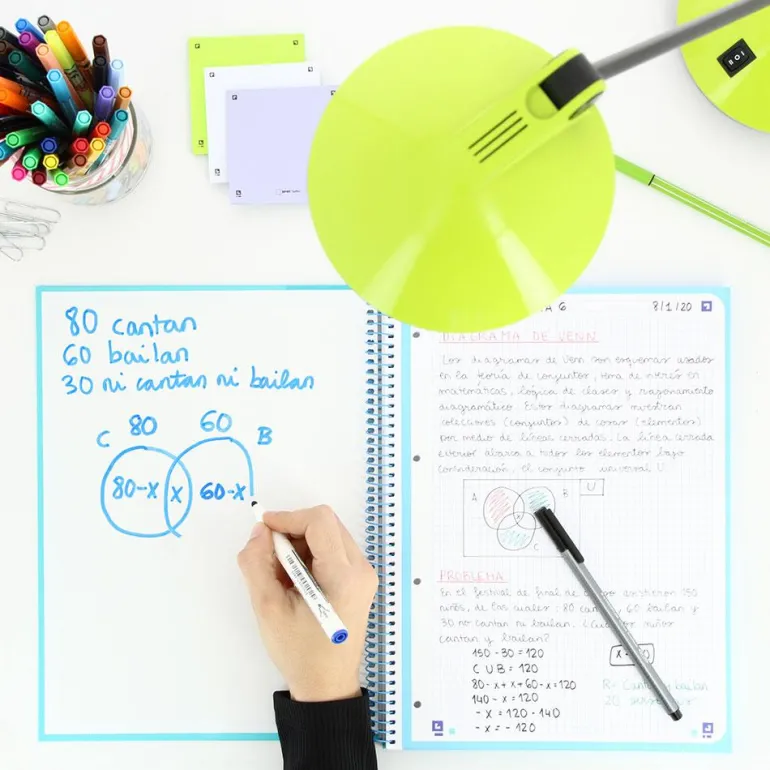 80 cantan
60 bailan
30 ni cantan ni bailan
80 60
C B
80-x x 60-x
A 6 8/1/20
DIAGRAMA DE VENN
Los diagramas de Venn son esquemas usados
en la teoría de conjuntos, tema de interés en
matemáticas, lógica de clases y razonamiento
diagramático. Estos diagramas muestran
colecciones (conjuntos) de cosas (elementos)
por medio de líneas cerradas. La línea cerrada
exterior abarca a todos los elementos bajo
consideración, el conjunto universal U.
A B U
C
PROBLEMA
En el festival de final de asistieron 150
niños, de los cuales: 80 can, 60 bailan y
30 no cantan ni bailan. niños
cantan y bailan?
150 - 30 = 120
C U B = 120
80 - x + x + 60 - x = 120
140 - x = 120
- x = 120 - 140
- x = - 120
x =
R= Cantan y bailan
20